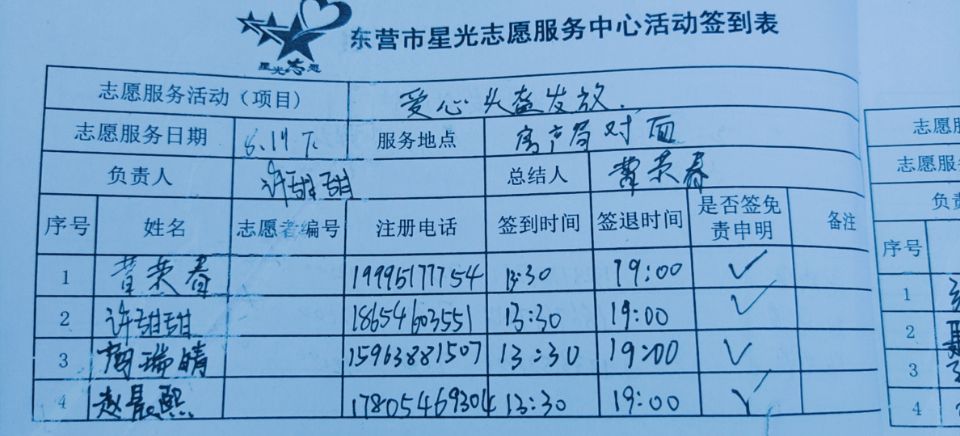 星光志愿
东营市星光志愿服务中心活动签到表
志愿服务活动（项目） 爱心头盔发放.
志愿服务日期 6.17下 服务地点 房产局对面
负责人 许甜甜 总结人 荣春
序号 姓名 志愿者编号 注册电话 签到时间 签退时间 是否签免责申明 备注
1 荣春 19995177754 13:30 19:00 ✓
2 许甜甜 18654603551 13:30 19:00 ✓
3 周瑞晴 15963881507 13:30 19:00 ✓
4 赵晨熙 17805469304 13:30 19:00 ✓
志愿服
志愿服
负责
序号
1
2
3
4